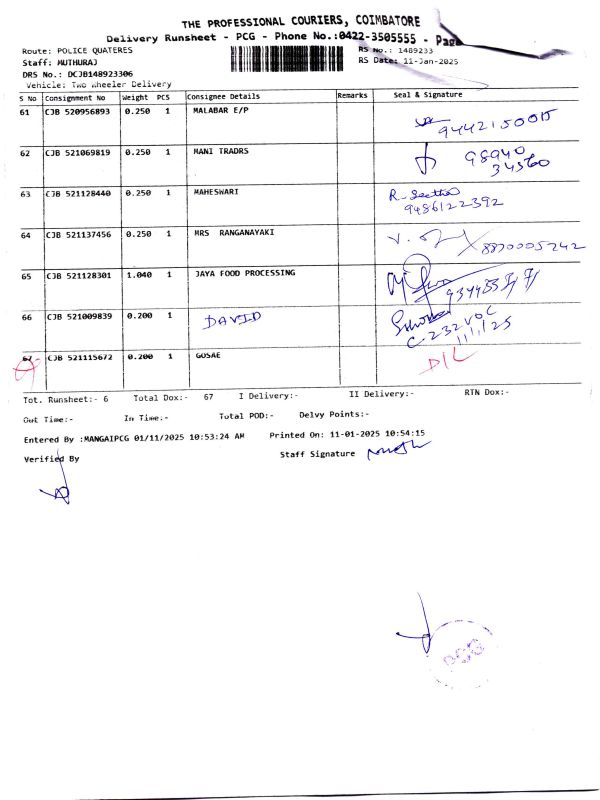 THE PROFESSIONAL COURIERS, COIMBATORE
Delivery Runsheet - PCG - Phone No.:0422-3505555 - Page
Route: POLICE QUATERES RS No.: 1489233
Staff: MUTHURAJ RS Date: 11-Jan-2025
DRS No.: DCJB148923306
Vehicle: Two Wheeler Delivery
S No Consignment No Weight PCS Consignee Details Remarks Seal & Signature
61 CJB 520956893 0.250 1 MALABAR E/P
62 CJB 521069819 0.250 1 MANI TRADRS 98940
34560
63 CJB 521128440 0.250 1 MAHESWARI R. Seetha
9486122392
64 CJB 521137456 0.250 1 MRS RANGANAYAKI 8870005242
65 CJB 521128301 1.040 1 JAYA FOOD PROCESSING
66 CJB 521009839 0.200 1 DAVID
C-232 VOC
11/1/25
67 CJB 521115672 0.200 1 GOSAE D/L
Tot. Runsheet:- 6 Total Dox:- 67 I Delivery:- II Delivery:- RTN Dox:-
Out Time:- In Time:- Total POD:- Delvy Points:-
Entered By :MANGAIPCG 01/11/2025 10:53:24 AM Printed On: 11-01-2025 10:54:15
Verified By Staff Signature
PCG